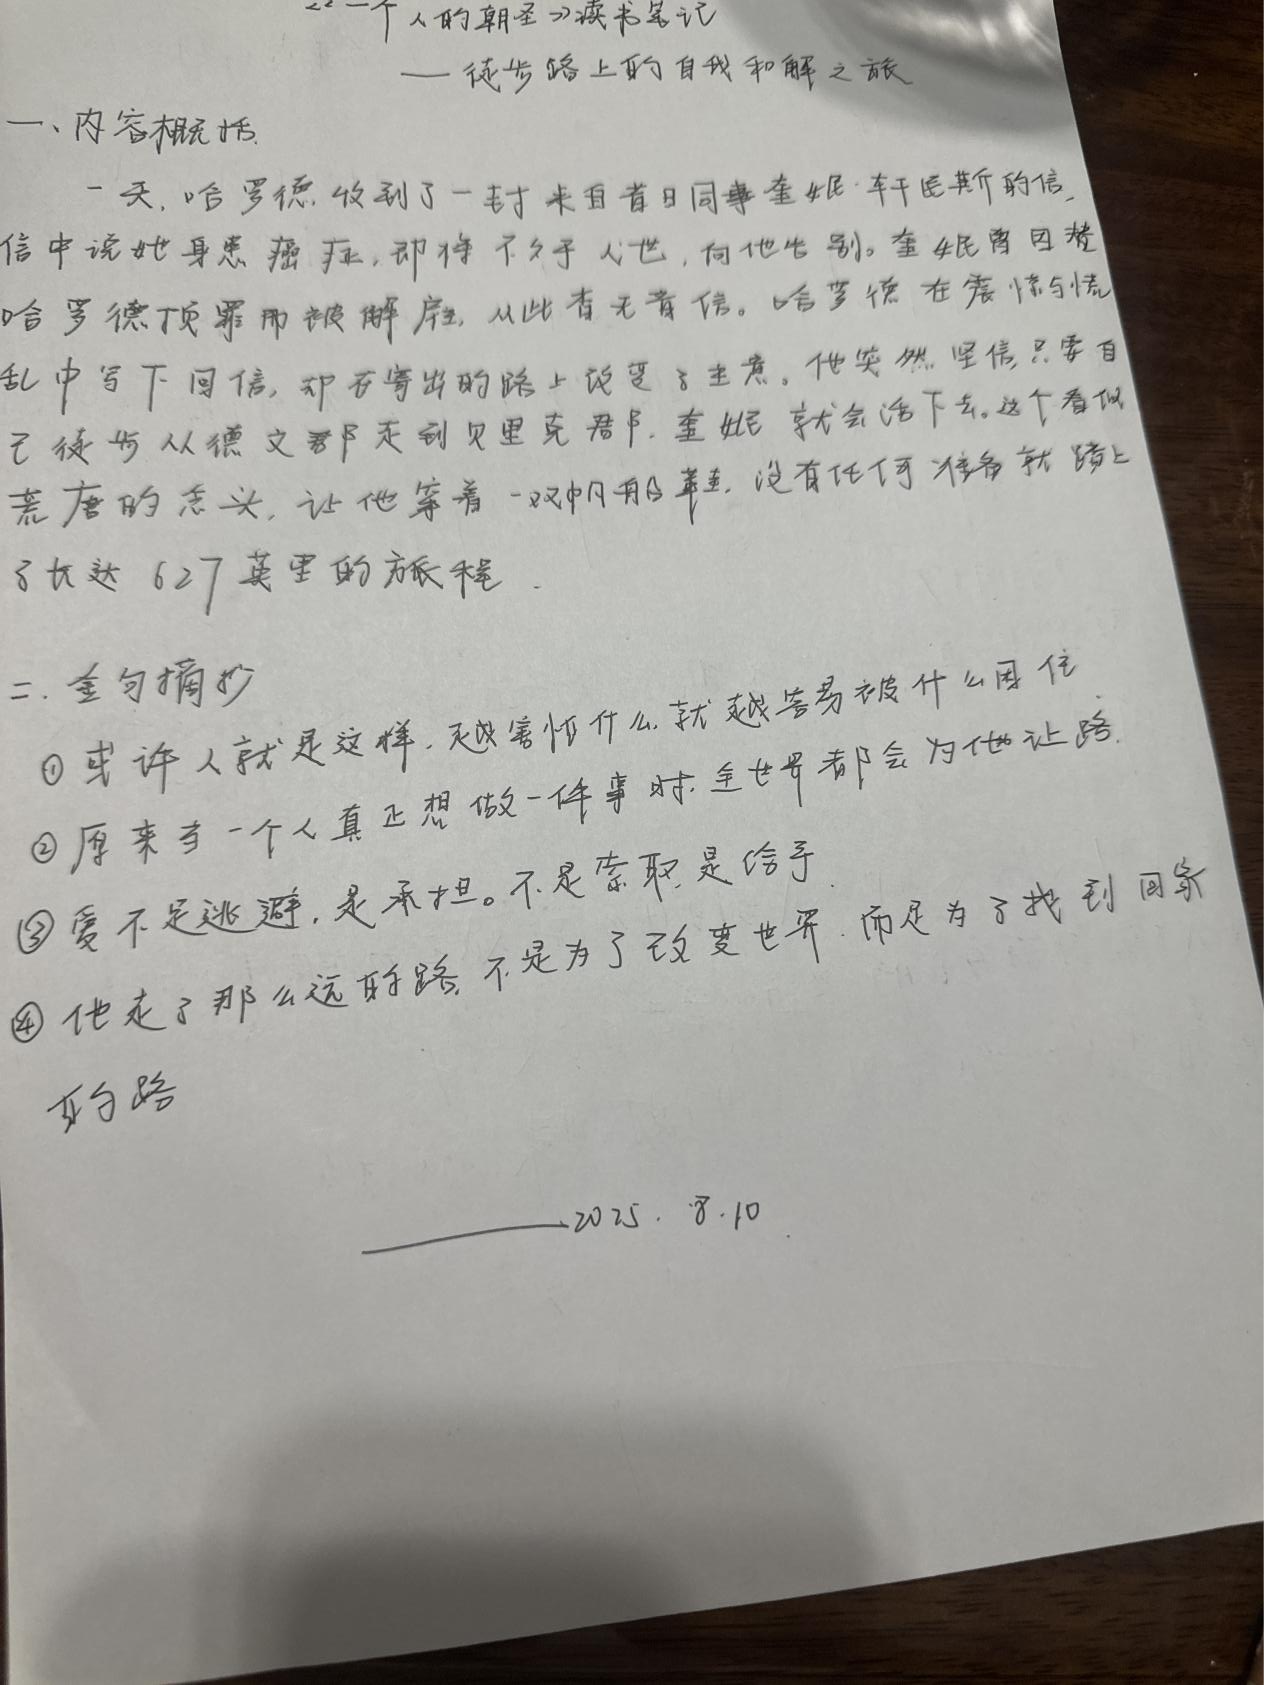 《一个人的朝圣》读书笔记
——徒步路上的自我和解之旅
一、内容概括
一天,哈罗德收到了一封来自昔日同事奎妮·轩尼斯的信,
信中说她身患癌症,即将不久于人世,向他告别。奎妮曾因替
哈罗德顶罪而被解雇,从此杳无音信。哈罗德在震惊与慌
乱中写下回信,却在寄出的路上改变了主意。他突然坚信,只要自
己徒步从德文郡走到贝里克郡,奎妮就会活下去。这个看似
荒唐的念头,让他穿着一双帆船鞋,没有任何准备就踏上
了长达627英里的旅程.
二.金句摘抄
①或许人就是这样,越害怕什么,就越容易被什么困住.
②原来当一个人真正想做一件事时,全世界都会为他让路.
③爱不是逃避,是承担。不是索取,是给予.
④他走了那么远的路,不是为了改变世界,而是为了找到回家
的路
——2025.8.10